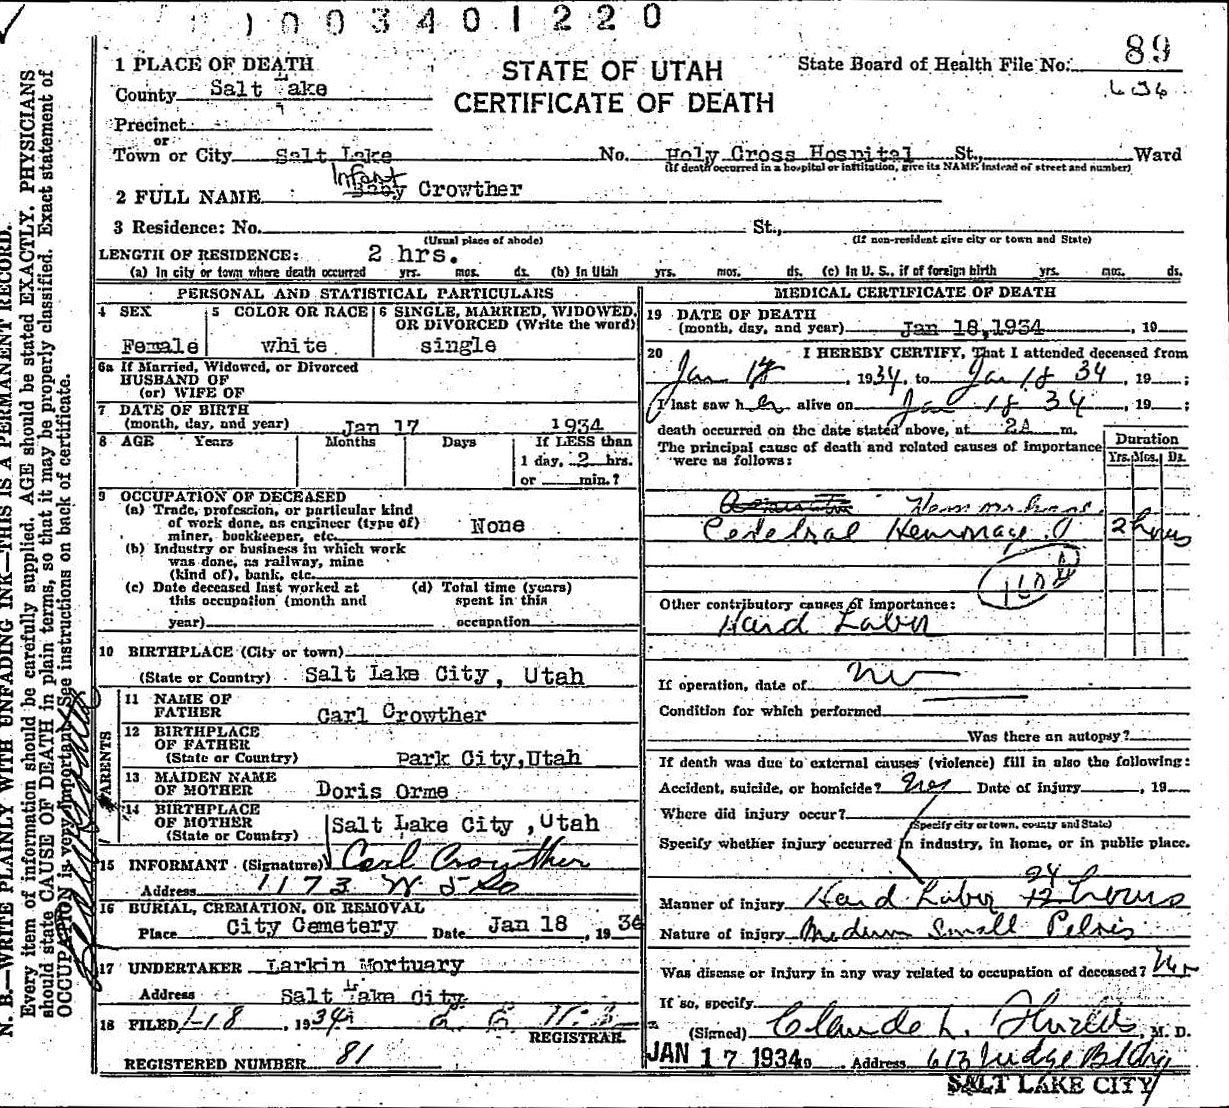 1003401220
1 PLACE OF DEATH
STATE OF UTAH
CERTIFICATE OF DEATH
State Board of Health File No. 89
636
County Salt Lake
Precinct
or
Town or City Salt Lake No. Holy Cross Hospital St., Ward
(If death occurred in a hospital or institution, give its NAME instead of street and number)
2 FULL NAME Infant Baby Crowther
3 Residence: No. St.,
(Usual place of abode) (If non-resident give city or town and State)
LENGTH OF RESIDENCE: 2 hrs.
(a) In city or town where death occurred yrs. mos. ds. (b) In Utah yrs. mos. ds. (c) In U. S., if of foreign birth yrs. mos. ds.
PERSONAL AND STATISTICAL PARTICULARS
4 SEX Female
5 COLOR OR RACE white
6 SINGLE, MARRIED, WIDOWED, OR DIVORCED (Write the word) single
6a If Married, Widowed, or Divorced
HUSBAND OF
(or) WIFE OF
7 DATE OF BIRTH
(month, day, and year) Jan 17 1934
8 AGE Years Months Days If LESS than
1 day, 2 hrs.
or min.?
9 OCCUPATION OF DECEASED
(a) Trade, profession, or particular kind
of work done, as engineer (type of)
miner, bookkeeper, etc. None
(b) Industry or business in which work
was done, as railway, mine
(kind of), bank, etc.
(c) Date deceased last worked at (d) Total time (years)
this occupation (month and spent in this
year) occupation
10 BIRTHPLACE (City or town)
(State or Country) Salt Lake City, Utah
PARENTS
11 NAME OF
FATHER Carl Crowther
12 BIRTHPLACE
OF FATHER
(State or Country) Park City, Utah
13 MAIDEN NAME
OF MOTHER Doris Orme
14 BIRTHPLACE
OF MOTHER
(State or Country) Salt Lake City, Utah
15 INFORMANT (Signature) Carl Crowther
Address 1173 W 5 So
16 BURIAL, CREMATION, OR REMOVAL
Place City Cemetery Date Jan 18, 1934
17 UNDERTAKER Larkin Mortuary
Address Salt Lake City
18 FILED 1-18, 1934
REGISTRAR.
REGISTERED NUMBER 81
MEDICAL CERTIFICATE OF DEATH
19 DATE OF DEATH
(month, day, and year) Jan 18, 1934, 19
20 I HEREBY CERTIFY, That I attended deceased from
Jan 18, 1934, to Jan 18 34, 19 ;
I last saw her alive on Jan 18 34, 19 ;
death occurred on the date stated above, at 2A m.
The principal cause of death and related causes of importance
were as follows:
Duration
Yrs. Mos. Ds.
Cerebral Hemorrage 2 hours
Other contributory causes of importance:
Hard Labor
If operation, date of no
Condition for which performed
Was there an autopsy?
If death was due to external causes (violence) fill in also the following:
Accident, suicide, or homicide? no Date of injury , 19
Where did injury occur?
(Specify city or town, county and State)
Specify whether injury occurred in industry, in home, or in public place.
24
Manner of injury Hard Labor 12 hours
Nature of injury Medium Small Pelvis
Was disease or injury in any way related to occupation of deceased? No
If so, specify
(Signed) Claude L. Shields, M. D.
JAN 17 1934 Address 613 Judge Bldg
SALT LAKE CITY
N. B.—WRITE PLAINLY WITH UNFADING INK—THIS IS A PERMANENT RECORD.
Every item of information should be carefully supplied. AGE should be stated EXACTLY. PHYSICIANS
should state CAUSE OF DEATH in plain terms, so that it may be properly classified. Exact statement of
OCCUPATION is very important. See instructions on back of certificate.